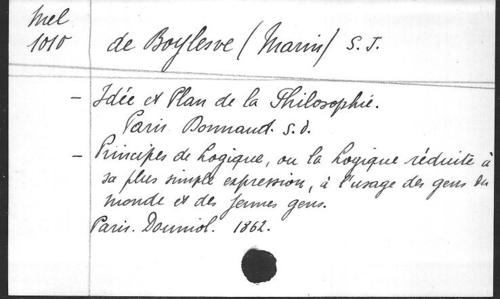 Mel
1010
de Boylesve (Marin) S. J.
– Idée et Plan de la Philosophie.
Paris Bonnaud. s. d.
– Principes de Logique, ou la Logique réduite à
sa plus simple expression, à l'usage des gens du
monde et des jeunes gens.
Paris. Douniol. 1862.